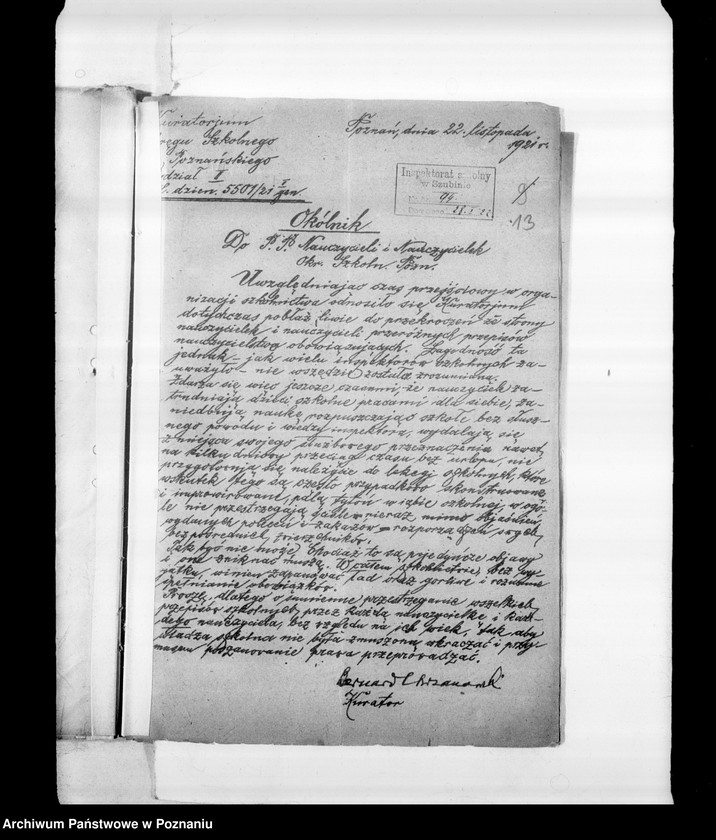 Kuratorjum
Okręgu Szkolnego
Poznańskiego
Wydział I
L. dzien. 5507/21 I
Poznań, dnia 22. listopada
1921 r.
Inspektorat szkolny
w Szubinie
8
13
Okólnik
Do P. P. Nauczycieli i Nauczycielek
Okr. Szkoln. Pozn.
Uwzględniając czas przejściowy w orga-
nizacji szkolnictwa odnosiło się Kuratorjum
dotychczas pobłażliwie do przekroczeń ze strony
nauczycielek i nauczycieli przeróżnych przepisów
nauczycielstwo obowiązujących. Łagodność ta
jednak - jak wielu inspektorów szkolnych za-
uważyło - nie wszędzie została zrozumiana.
Zdarza się więc jeszcze czasami, że nauczyciele za-
trudniają dzieci szkolne pracami dla siebie, za-
niedbują naukę, rozpuszczając szkołę bez słusz-
nego powodu i wiedzy inspektora, wydalają się
z miejsca swojego służbowego przeznaczenia nawet
na kilkudniowy przeciąg czasu bez urlopu, nie
przygotowują się należycie do lekcji szkolnych, które
wskutek tego są często przypadkowo skonstruowane
i improwizowane, palą tytoń w izbie szkolnej, w ogó-
le nie przestrzegają nieraz mimo objaśnień,
wydanych poleceń i zakazów - rozporządzeń swych
bezpośrednich zwierzchników.
Tak być nie może. Chociaż to są pojedyncze objawy
i one zniknąć muszą. W całem szkolnictwie bez wy-
jątku, winien zapanować ład oraz gorliwe i rozumne
spełnianie obowiązków.
Proszę dlatego o sumienne przestrzeganie wszelkich
przepisów szkolnych przez każdą nauczycielkę i każ-
dego nauczyciela, bez względu na ich wiek, tak aby
władza szkolna nie była zmuszoną wkraczać i przy-
musem poszanowanie prawa przeprowadzać.
Bernard Chrzanowski
Kurator
Archiwum Państwowe w Poznaniu